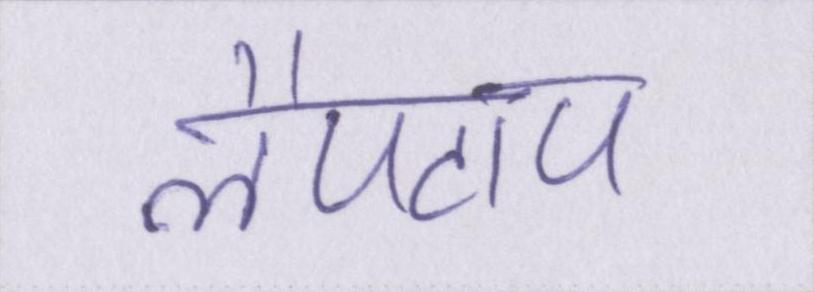 लैपटाप